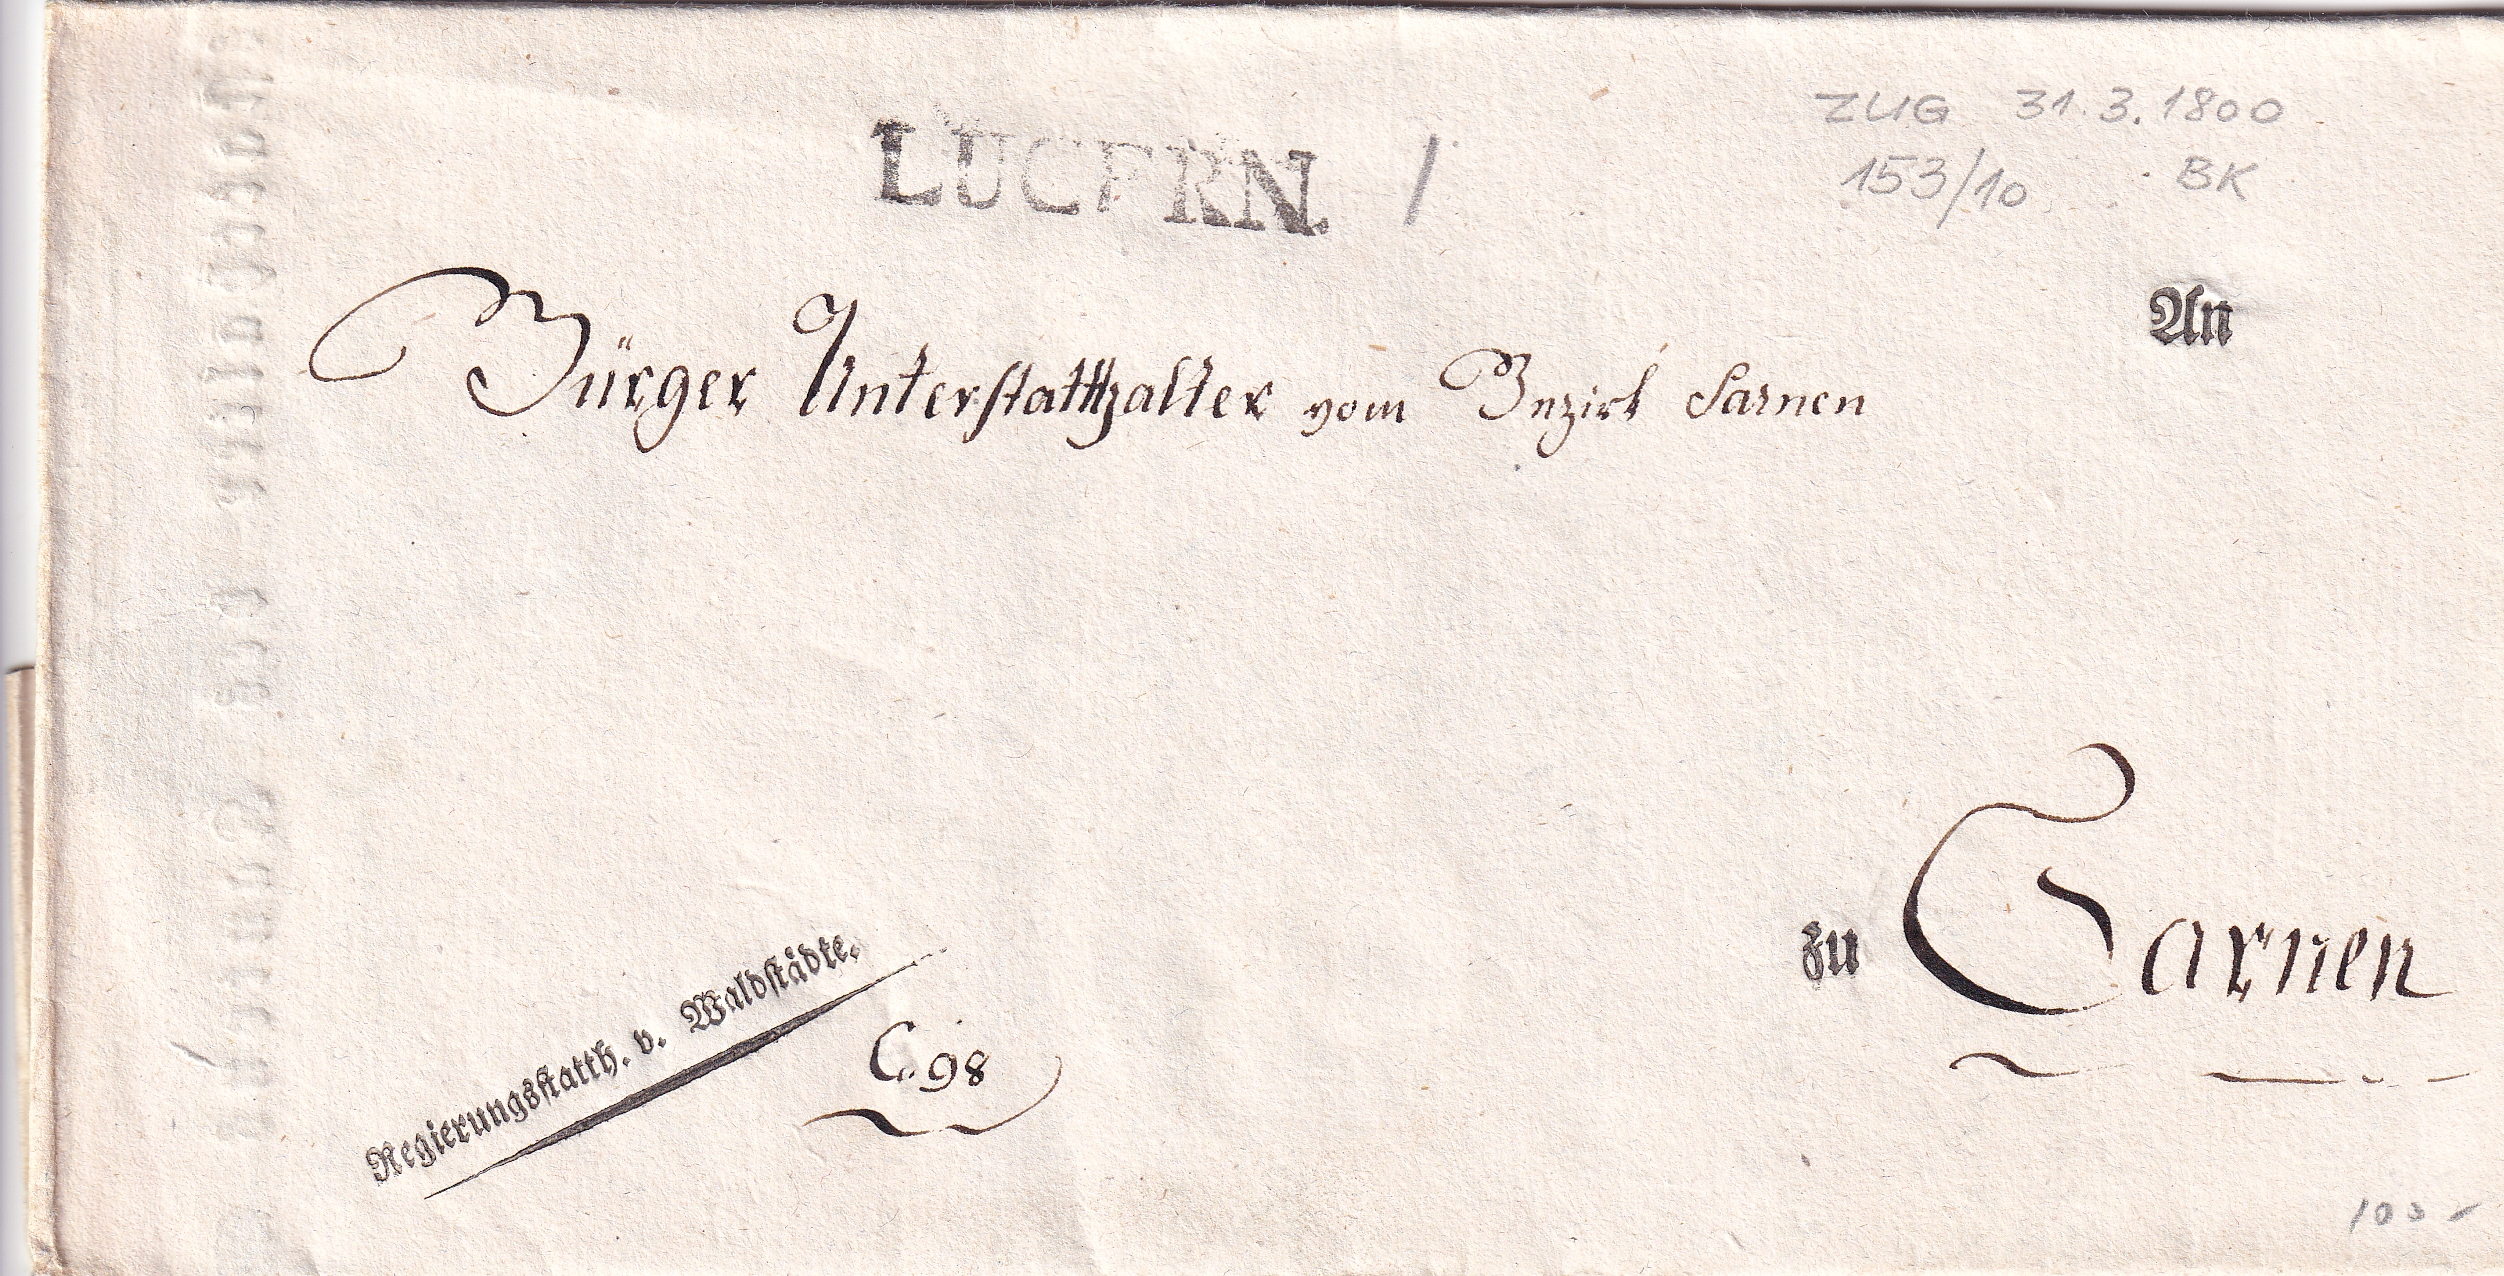 ZUG 31.3.1800
LUCERN. /
153/10 BK
An
Bürger Unterstatthalter vom Bezirk Sarnen
zu Sarnen
Regierungsstatth. v. Waldstädte.
C. 98